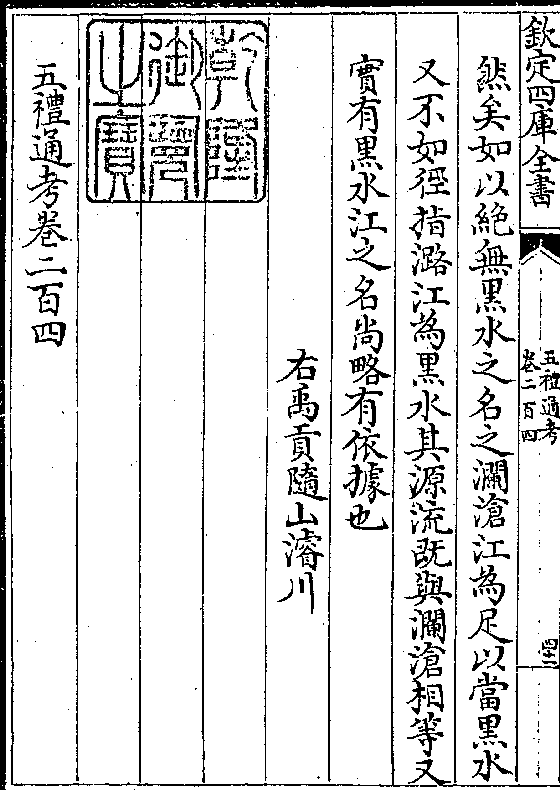 欽定四庫全書
五禮通考
卷二百四
四十二
然矣如以絶無黑水之名之瀾滄江為足以當黑水
又不如徑指潞江為黑水其源流既與瀾滄相等又
實有黑水江之名尚略有依據也
右禹貢隨山濬川
乾隆
御覽
之寶
五禮通考卷二百四